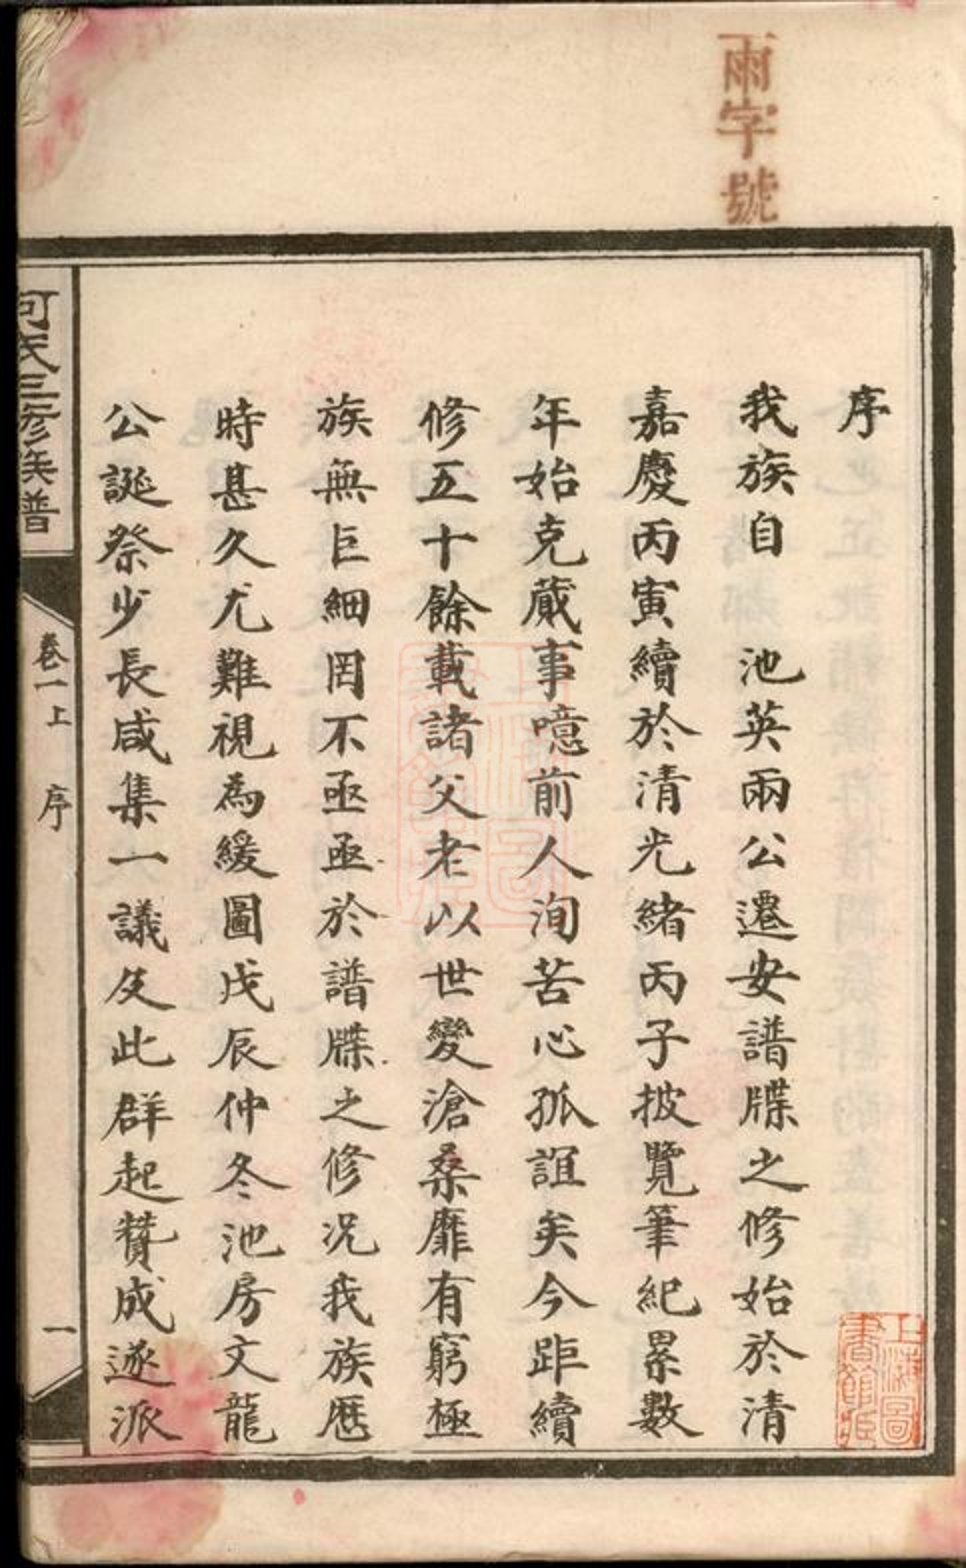 雨字號
序
我族自　池英兩公遷安譜牒之修始於清
嘉慶丙寅續於清光緒丙子披覽筆紀累數
年始克蕆事噫前人洵苦心孤誼矣今距續
修五十餘載諸父老以世變滄桑靡有窮極
族無巨細罔不亟亟於譜牒之修况我族歷
時甚久尤難視為緩圖戊辰仲冬池房文龍
公誕祭少長咸集一議及此群起贊成遂派
氏三修族譜
卷一上
序
一
上海圖書館藏